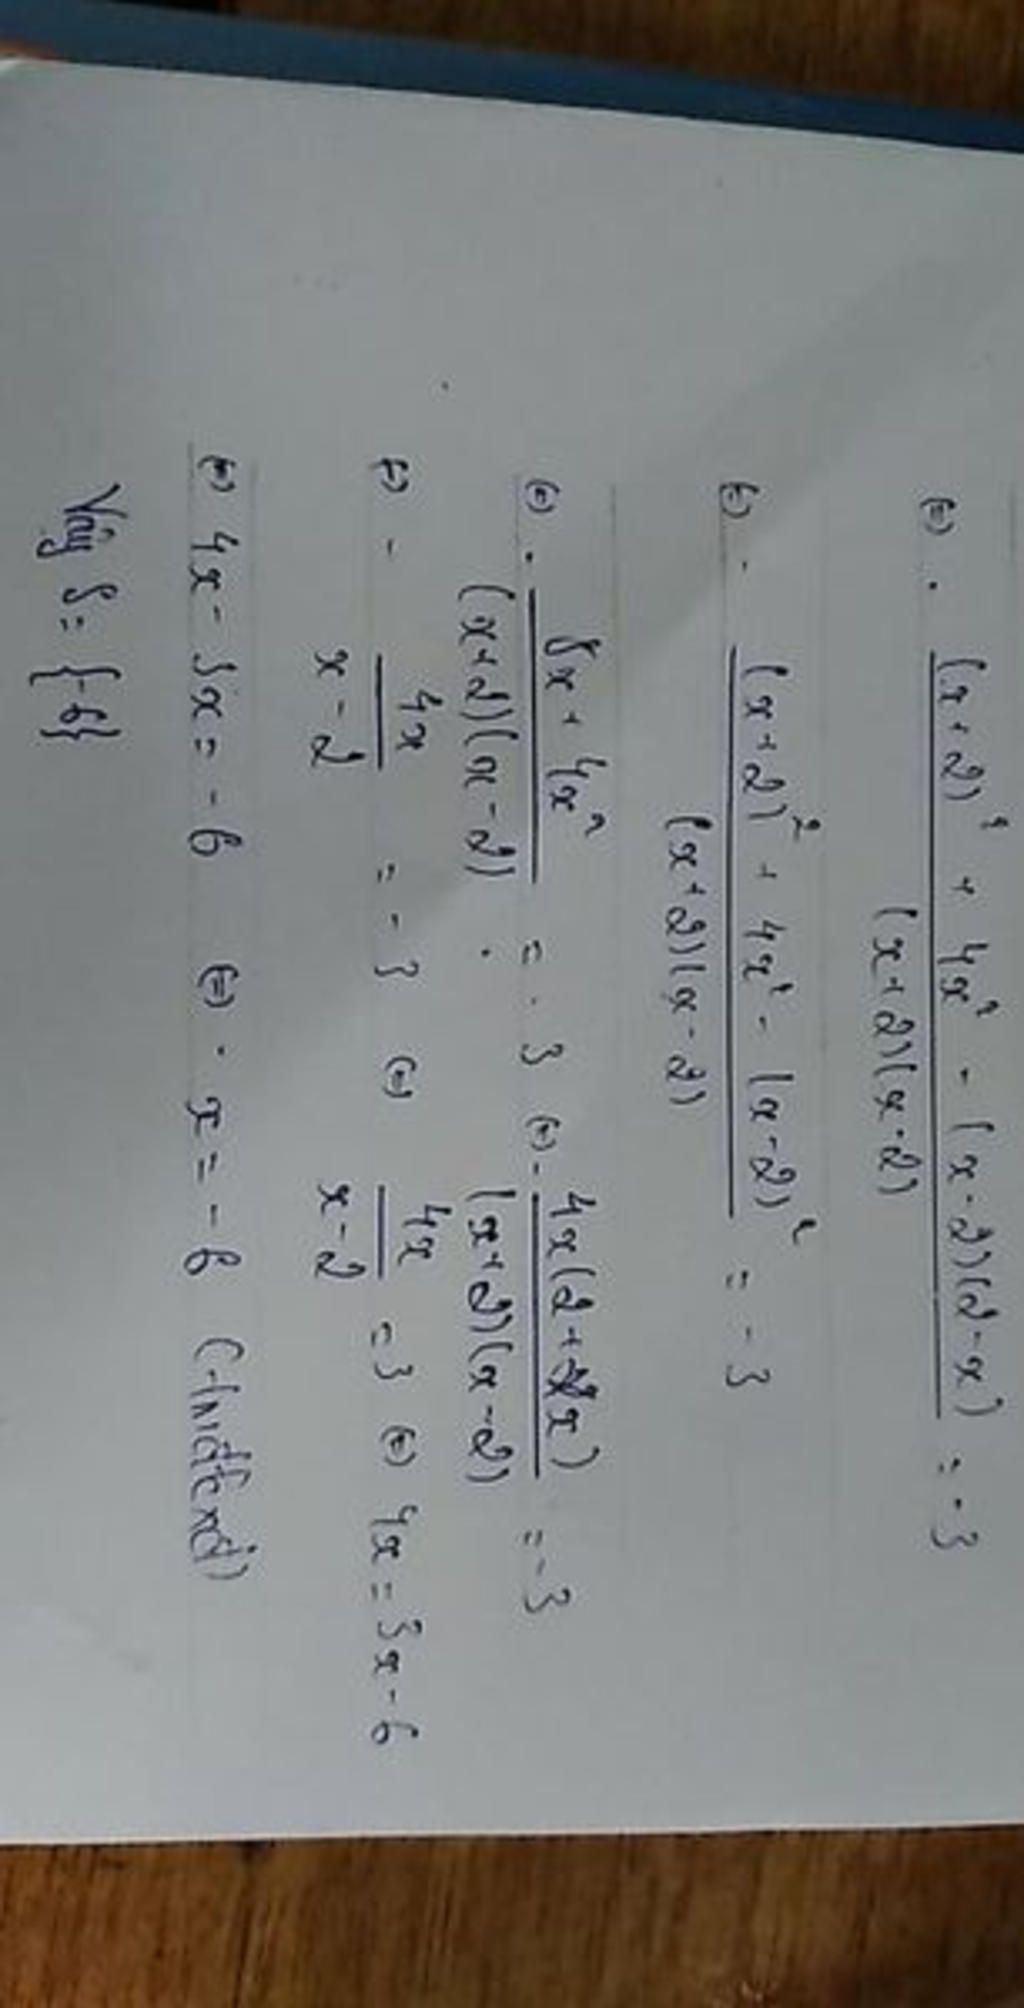 ⇔ - ((x+2)² + 4x² - (x-2)(2-x)) / ((x+2)(x-2)) = -3
⇔ - ((x+2)² + 4x² - (x-2)²) / ((x+2)(x-2)) = -3
⇔ - (8x + 4x²) / ((x+2)(x-2)) = -3 ⇔ - (4x(2+x)) / ((x+2)(x-2)) = -3
⇔ - 4x / (x-2) = -3 ⇔ 4x / (x-2) = 3 ⇔ 4x = 3x - 6
⇔ 4x - 3x = -6 ⇔ x = -6
Vậy S = {-6}